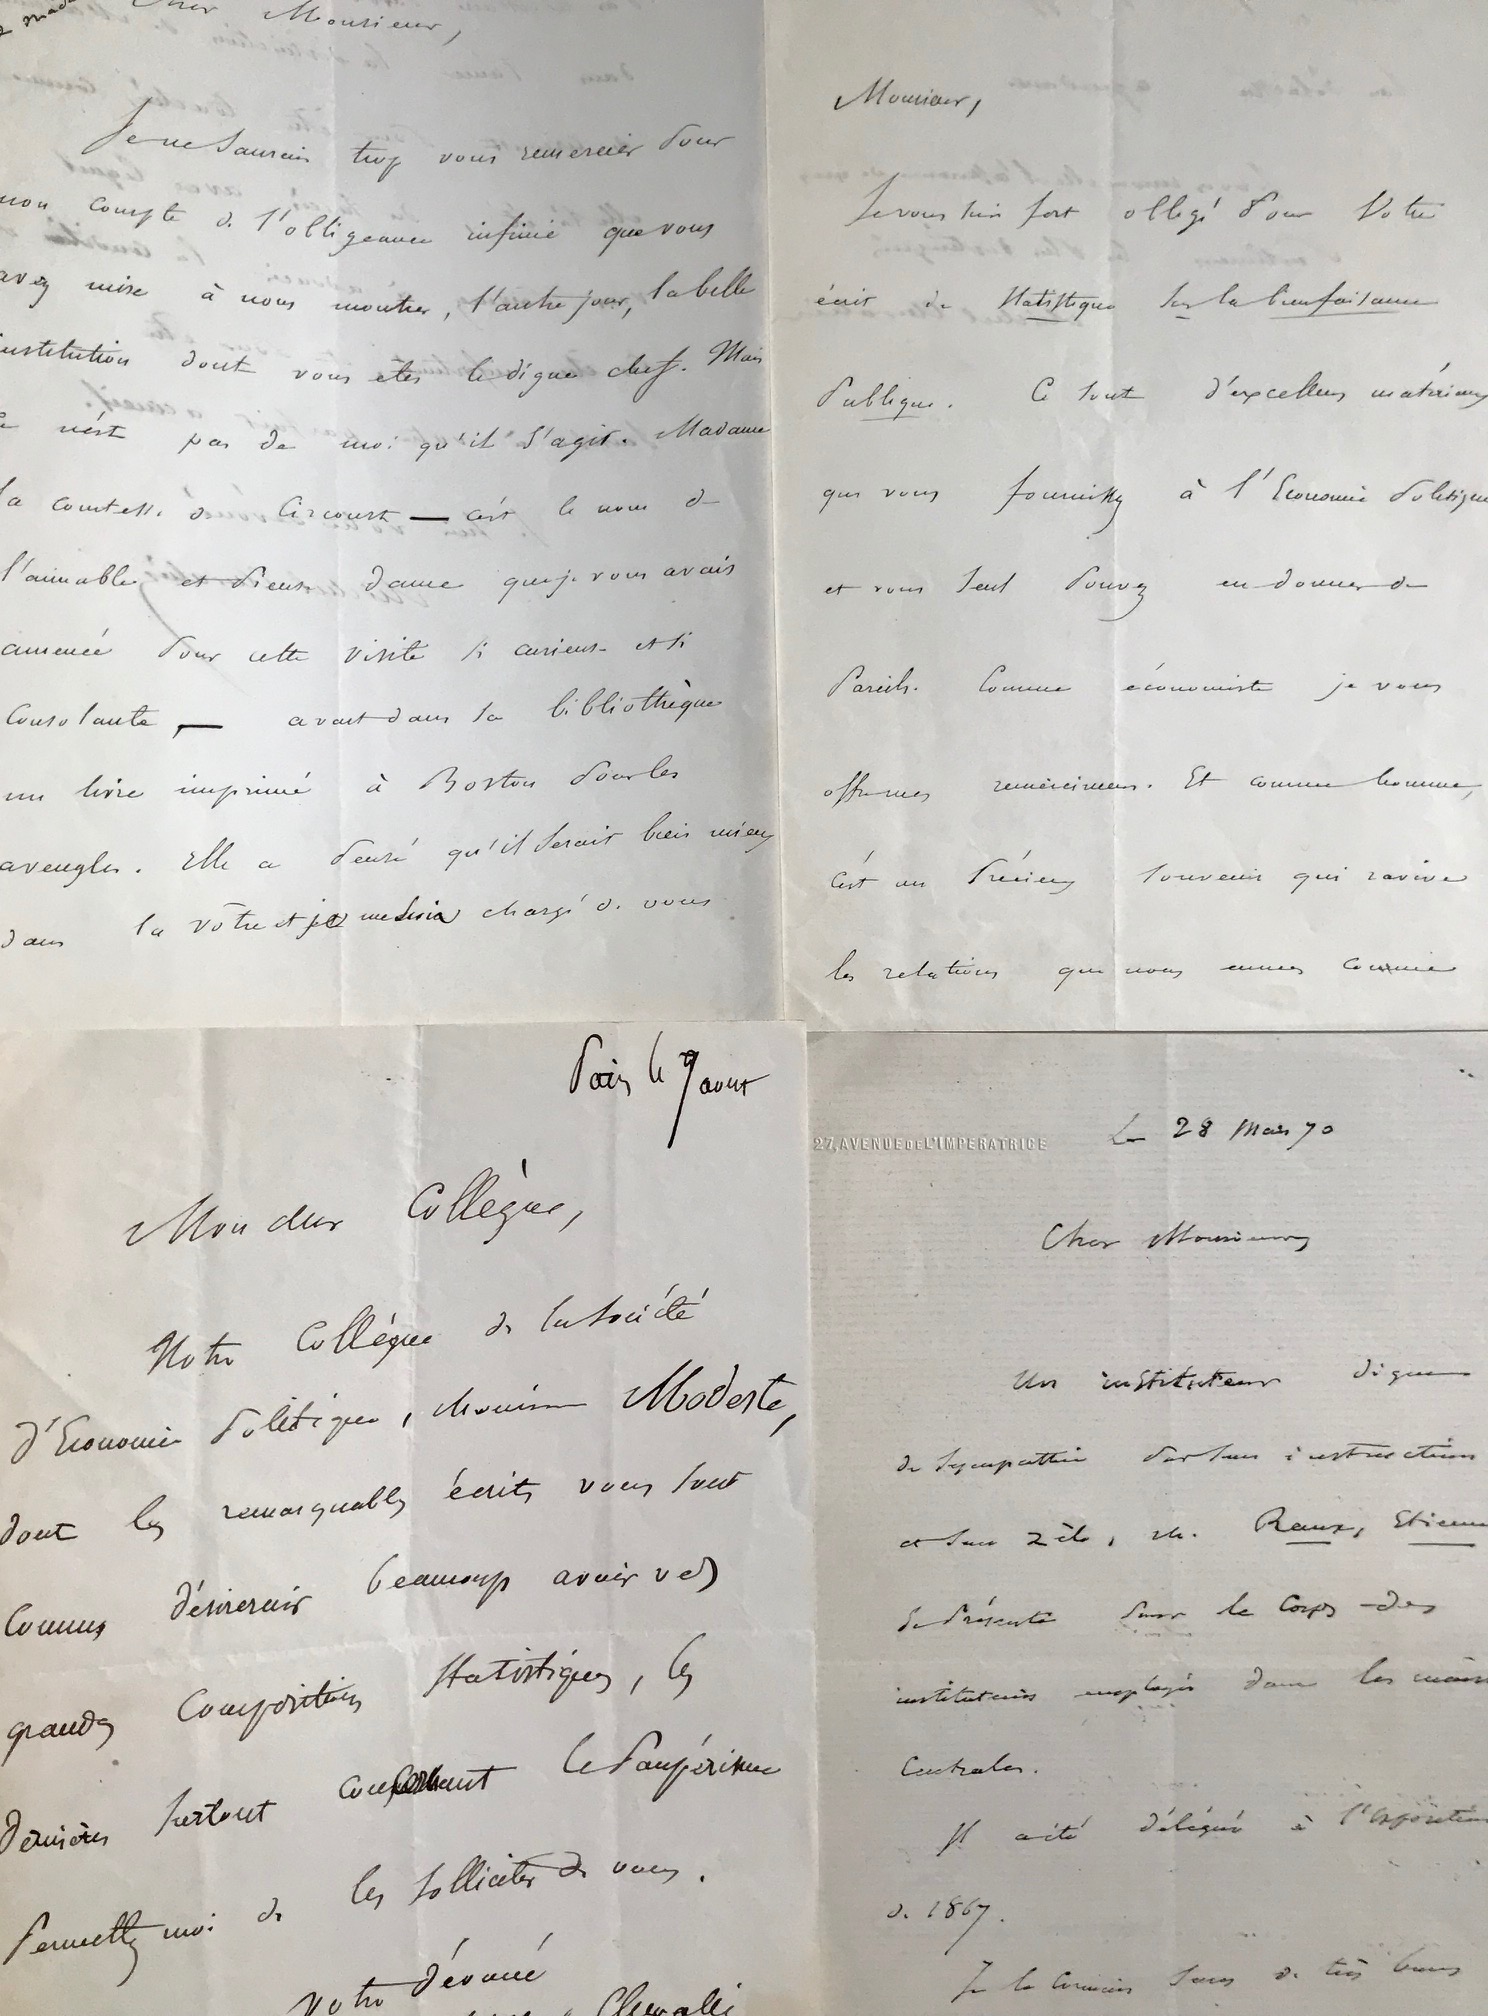 Cher Monsieur,
Je ne saurais trop vous remercier pour
mon compte de l'obligeance infinie que vous
avez mise à nous montrer, l'autre jour, la belle
institution dont vous êtes le digne chef. Mais
ce n'est pas de moi qu'il s'agit. Madame
la comtesse de Circourt — c'est le nom de
l'aimable et pieuse dame que je vous avais
amenée pour cette visite si curieuse et si
consolante, — avait dans sa bibliothèque
un livre imprimé à Boston pour les
aveugles. Elle a pensé qu'il serait bien mieux
dans la vôtre et je me suis chargé de vous
Monsieur,
Je vous suis fort obligé pour votre
écrit de Statistique sur la bienfaisance
publique. Ce sont d'excellens matériaux
que vous fournissez à l'Economie politique
et vous seul pouvez en donner de
pareils. Comme économiste je vous
offre mes remercimens. Et comme homme,
c'est un précieux souvenir qui ravive
les relations que nous eumes comme
Paris le 7 aout
Mon cher Collègue,
Notre Collégue de la Société
d'Economie Politique, Monsieur Modeste,
dont les remarquables écrits vous sont
connus désirerait beaucoup avoir vos
grandes compositions statistiques, les
dernières surtout concernant le Paupérisme
Permettez moi de les solliciter de vous.
Votre dévoué
Chevalier
27, AVENUE DE L'IMPERATRICE
Le 28 Mars 70
Cher Monsieur,
Un instituteur digne
de sympathie par son instruction
et son zèle, M. Raux, Etienne
se présente pour le Corps des
instituteurs employés dans les maisons
Centrales.
Il a été délégué à l'Exposition
de 1867.
Je le connais sous de très bons